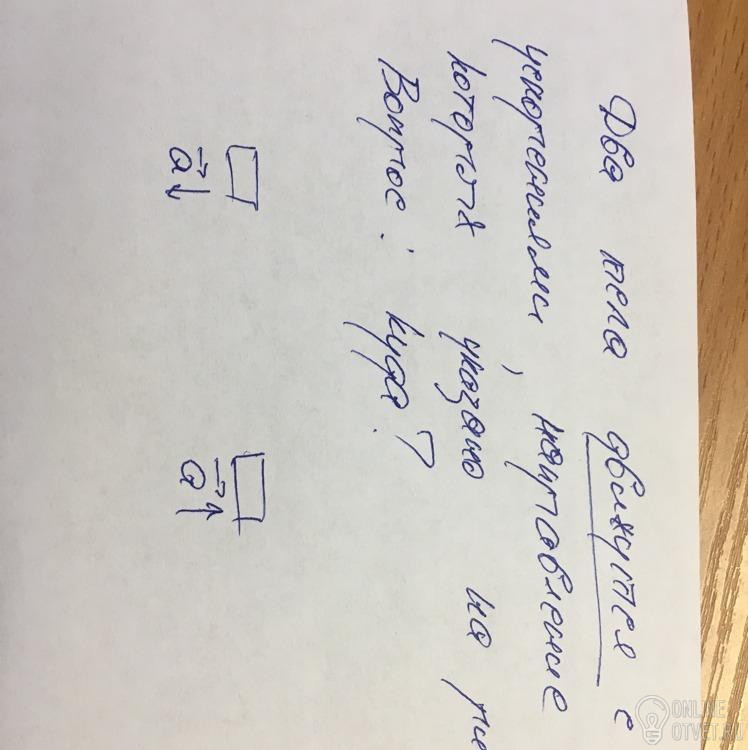 Два тела движутся с
ускорениями, направление
которых указано на
Вопрос: куда?
a a
ONLINE
OTVET.RU